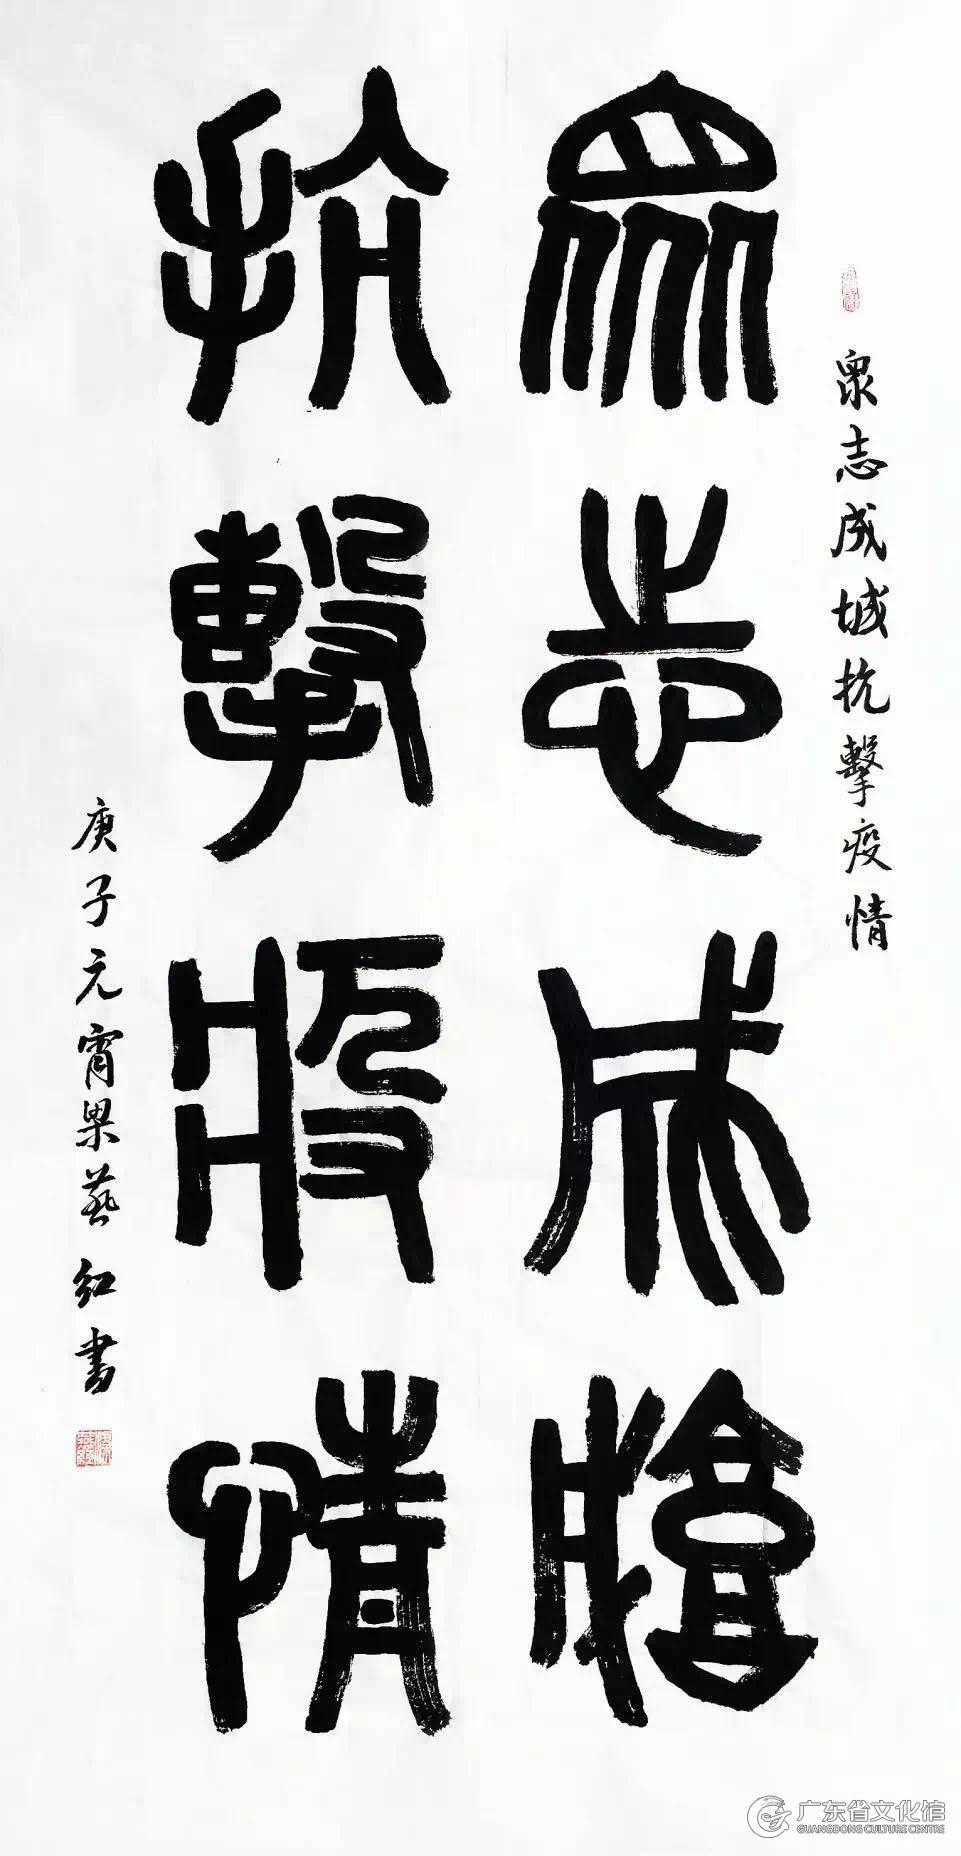 眾志成城
抗擊疫情
眾志成城抗擊疫情
庚子元宵梁燕紅書
广东省文化馆
GUANGDONG CULTURE CENTRE